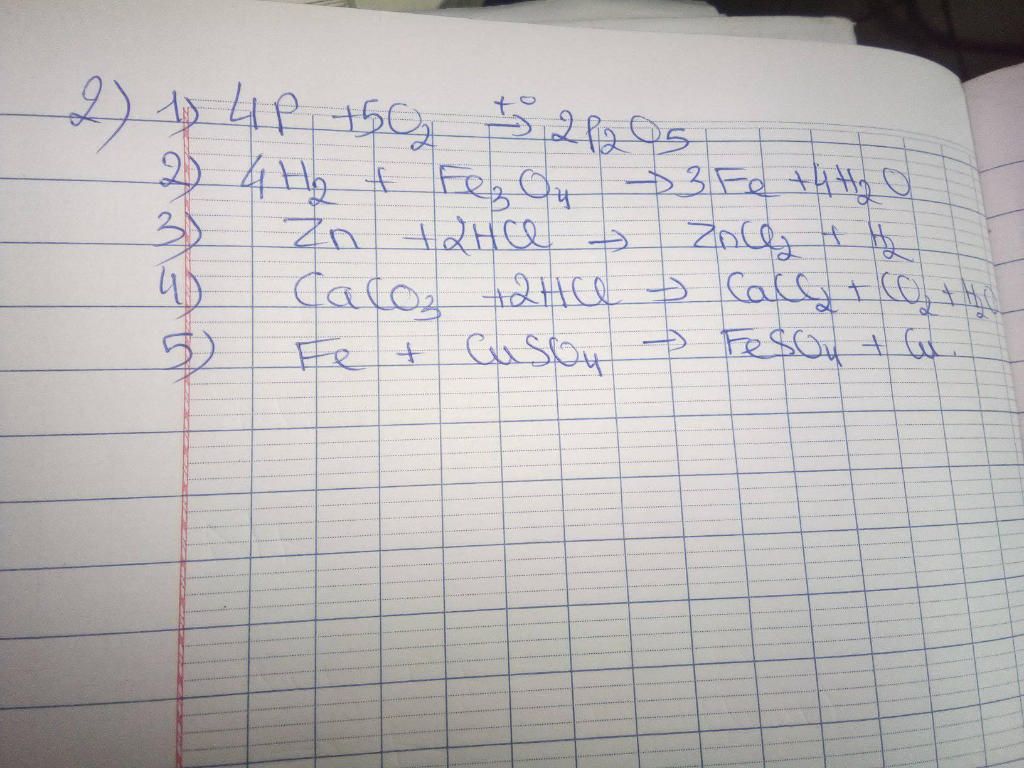 2) 1) 4P + 5O₂ →(t°) 2P₂O₅
2) 4H₂ + Fe₃O₄ → 3Fe + 4H₂O
3) Zn + 2HCl → ZnCl₂ + H₂
4) CaCO₃ + 2HCl → CaCl₂ + CO₂ + H₂O
5) Fe + CuSO₄ → FeSO₄ + Cu.